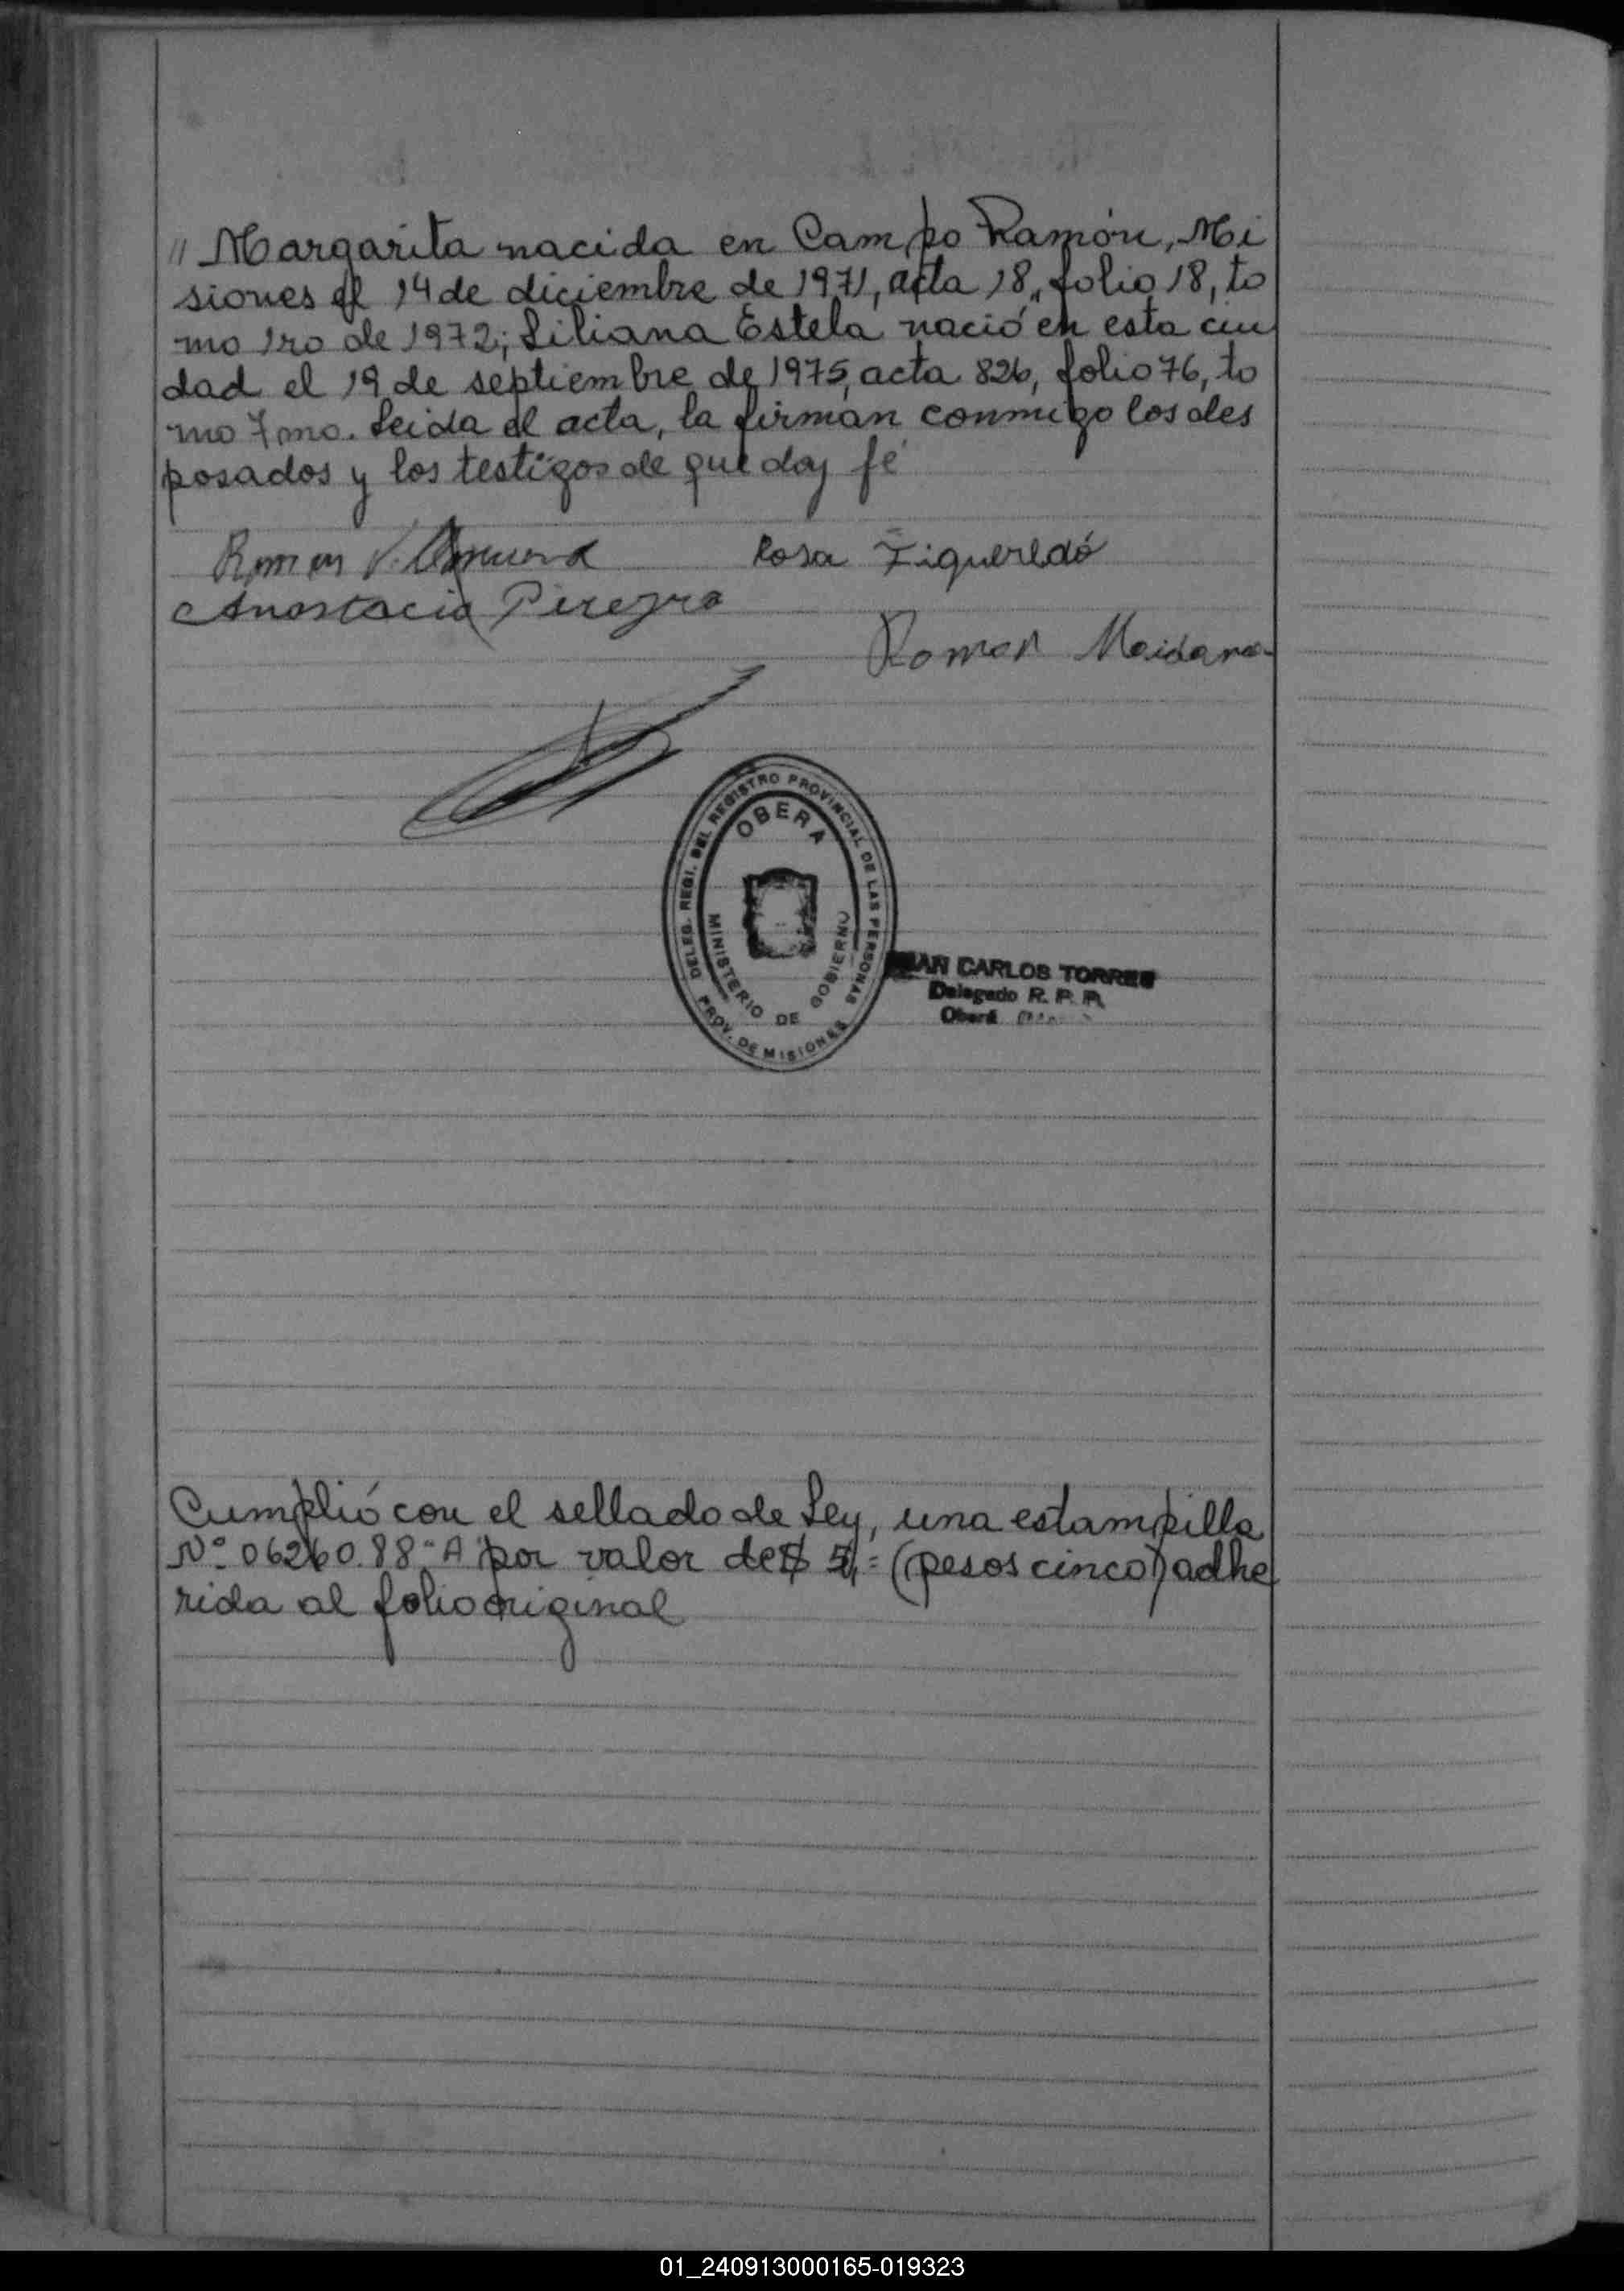 // Margarita nacida en Campo Ramón, Mi
siones el 14 de diciembre de 1971, acta 18, folio 18, to
mo 1ro de 1972; Liliana Estela nació en esta ciu
dad el 19 de septiembre de 1975, acta 826, folio 76, to
mo 7mo. Leida el acta, la firman conmigo los des
posados y los testigos de que doy fé
Ramon V. Rosa Figueredó
Anastacia Pereyra
Roman Maidana
DELEG. REGI. DEL REGISTRO PROVINCIAL DE LAS PERSONAS
OBERA
MINISTERIO DE GOBIERNO
PROV. DE MISIONES
JUAN CARLOS TORRES
Delegado R. P. P.
Oberá
Cumplió con el sellado de Ley, una estampilla
Nº 06260.88-A por valor de $ 5,= (pesos cinco) adhe
rida al folio original
01_240913000165-019323